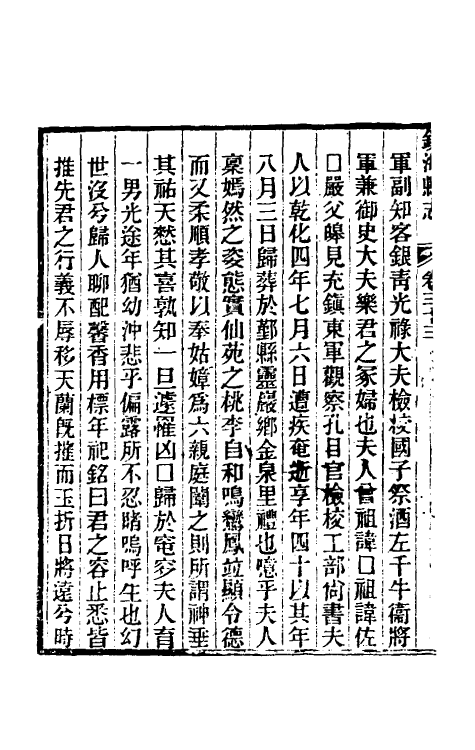 鎮海縣志
卷三十三
軍副知客銀青光祿大夫檢校國子祭酒左千牛衞將
軍兼御史大夫樂君之冢婦也夫人曾祖諱口祖諱佐
口嚴父皡見充鎭東軍觀察孔目官檢校工部尙書夫
人以乾化四年七月六日遘疾奄逝享年四十以其年
八月三日歸葬於鄞縣靈巖鄉金泉里禮也噫乎夫人
稟嫣然之姿態實仙苑之桃李自和鳴鸞鳳竝顯令德
而又柔順孝敬以奉姑嫜爲六親庭闈之則所謂神垂
其祐天憖其喜孰知一旦遽罹凶口歸於窀穸夫人育
一男光途年猶幼沖悲乎偏露所不忍睹嗚呼生也幻
世沒兮歸人聊配馨香用標年祀銘曰君之容止悉皆
推先君之行義不辱移天蘭旣摧而玉折日將遠兮時